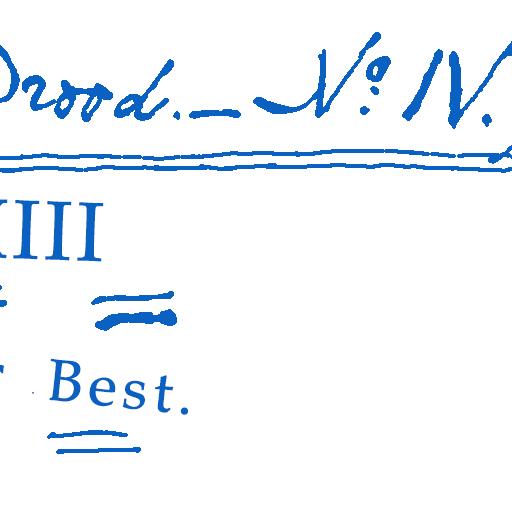 Drood.— Nº IV.
XIII
Best.